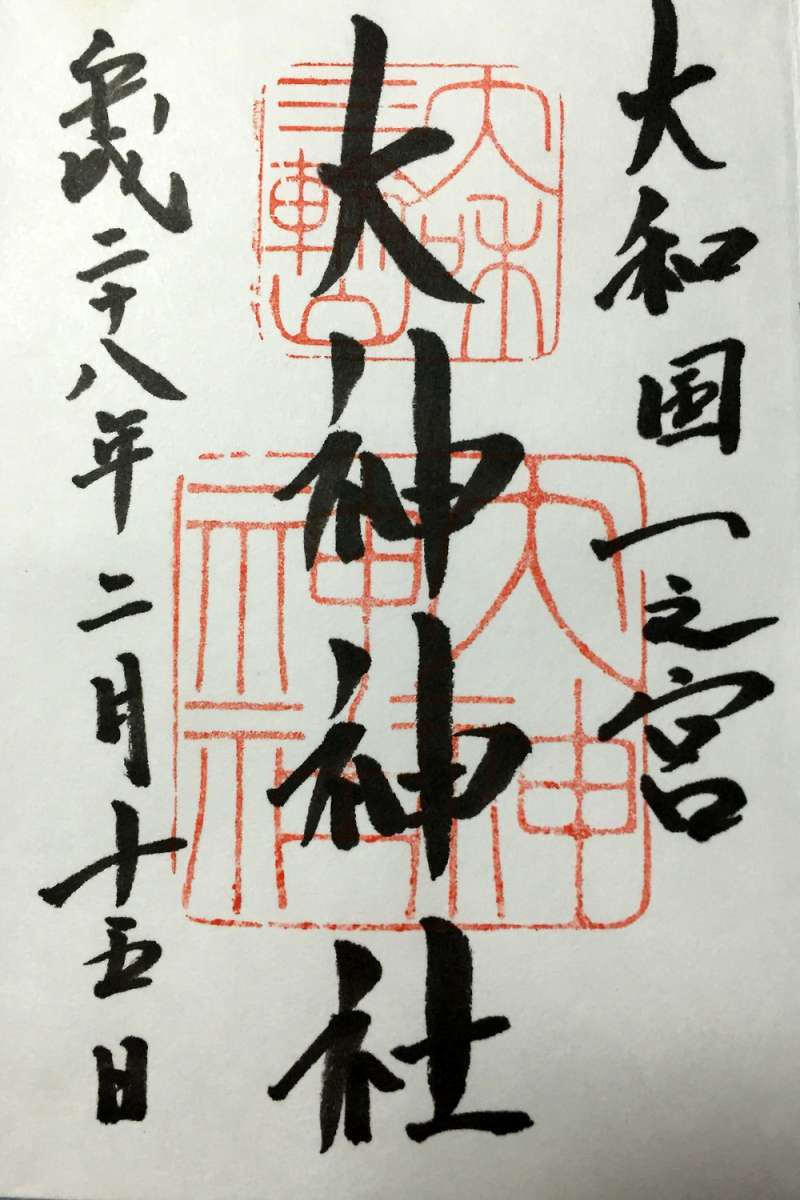 大和国一之宮
大神神社
平成二十八年二月十五日
大和
三輪山
大神
神社